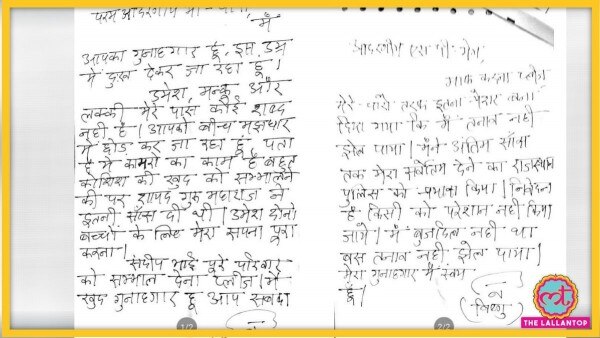 परम आदरणीय माँ - पापा,
मैं
आपका गुनाहगार हूं, इस उम्र
में दुख देकर जा रहा हूं।
उमेश, मन्कू और
लक्की मेरे पास कोई शब्द
नहीं है। आपको बीच मझधार
में छोड कर जा रहा हूं, पता
है ये कायरों का काम है बहुत
कोशिश की खुद को सम्भालने
की पर शायद गुरु महाराज ने
इतनी सांस दी थी। उमेश दोनो
बच्चो के लिए मेरा सपना पूरा
करना।
संदीप भाई पूरे परिवार
को सम्भाल देना प्लीज। मैं
खुद गुनाहगार हूं आप सबका
1/2
आदरणीय एस पी मैम,
माफ करना प्लीज
मेरे चारों तरफ इतना प्रेशर बना
दिया गया कि मैं तनाव नही
झेल पाया। मैंने अंतिम सांस
तक मेरा सर्वोत्तम देने का राजस्थान
पुलिस को प्रयास किया। निवेदन
है किसी को परेशान नही किया
जाये। मैं बुजदिल नही था
बस तनाव नही झेल पाया।
मेरा गुनाहगार मैं स्वयं
हूं।
(विष्णु)
2/2
THE LALLANTOP